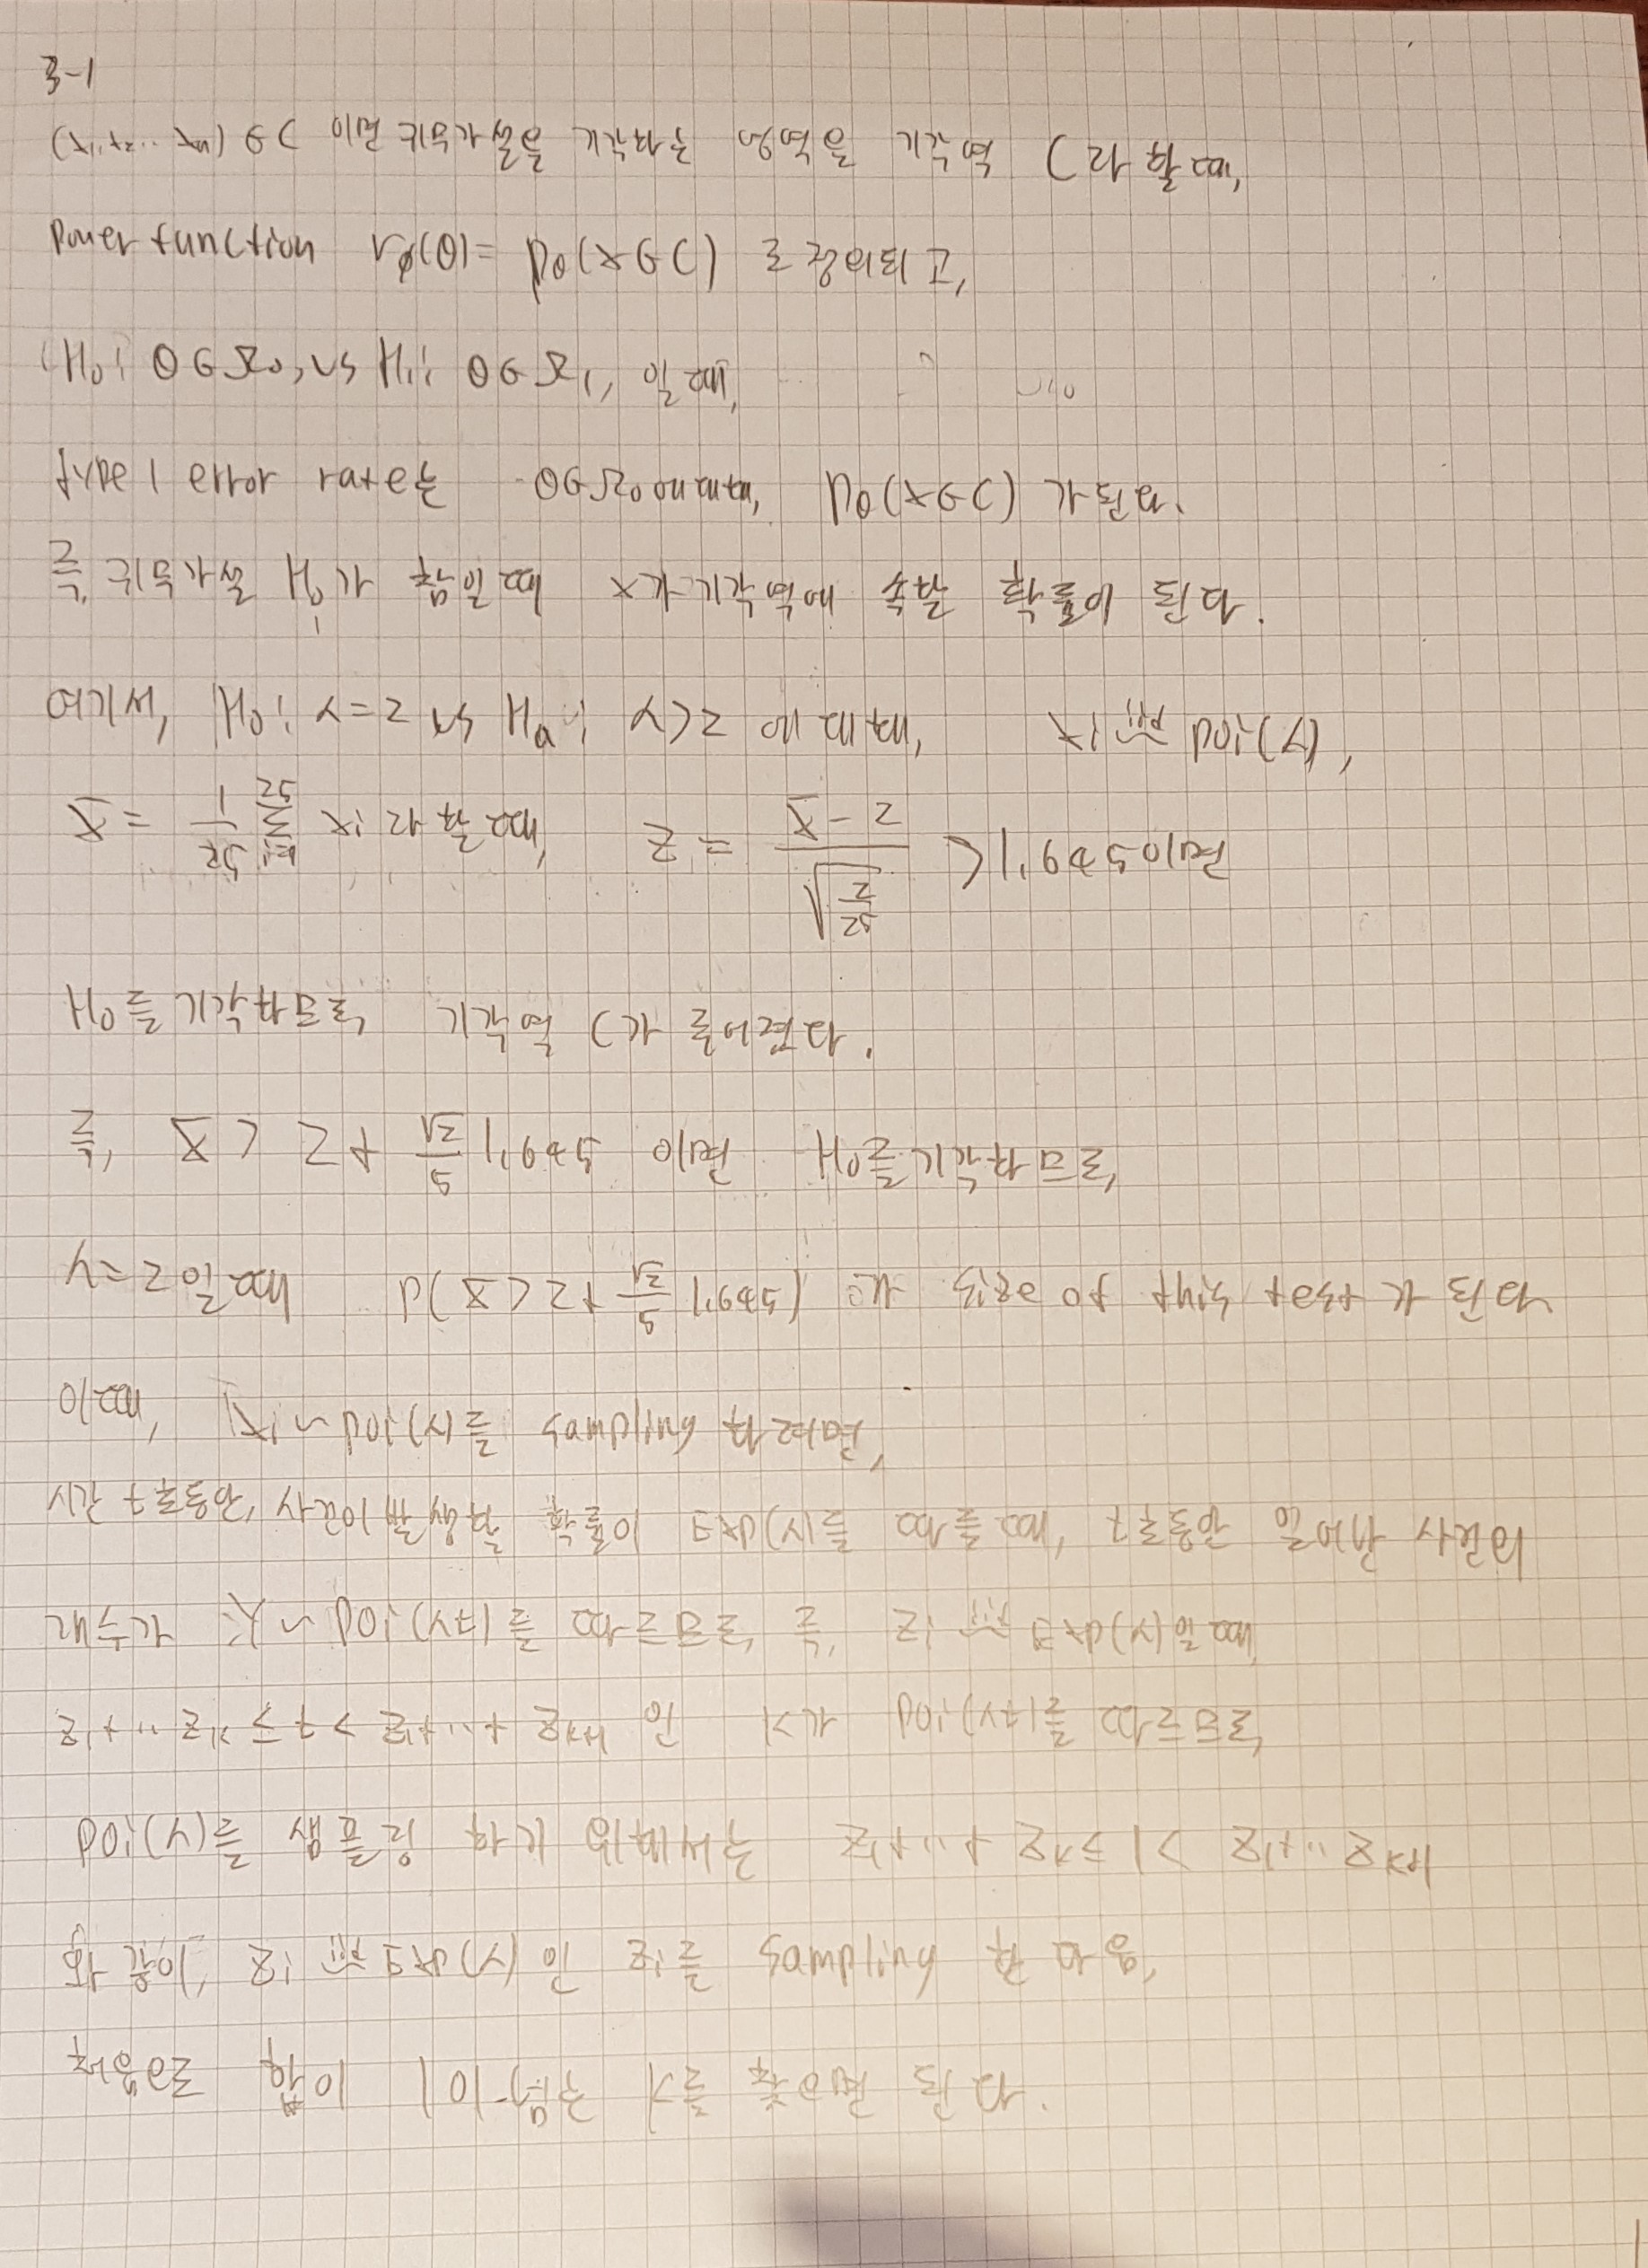 3-1
(x₁, x₂ ... xₙ) ∈ C 이면 귀무가설을 기각하는 영역을 기각역 C라 할때,
power function γ_φ(θ) = p_θ(x∈C) 로 정의되고,
H₀: θ∈Ω₀, vs H₁: θ∈Ω₁, 일때,
type 1 error rate는 θ∈Ω₀에 대해, p_θ(x∈C) 가 된다.
즉, 귀무가설 H₀가 참일때 x가 기각역에 속할 확률이 된다.
여기서, H₀: λ=2 vs Hₐ: λ>2 에 대해, xᵢ ~iid poi(λ),
x̄ = 1/25 Σ_{i=1}^{25} xᵢ 라 할때, Z = (x̄-2)/√(2/25) > 1.645이면
H₀를 기각하므로, 기각역 C가 주어졌다.
즉, x̄ > 2 + √2/5 1.645 이면 H₀를 기각하므로,
λ=2일때 p(x̄ > 2 + √2/5 1.645) 는 size of this test 가 된다
이때, xᵢ ~ poi(λ)를 sampling 하려면,
시간 t동안, 사건이 발생할 확률이 Exp(λ)를 따를때, t동안 일어난 사건의
개수가 Y ~ poi(λt)를 따르므로, 즉, zᵢ ~iid Exp(λ)일때,
z₁+...zₖ ≤ t < z₁+...+zₖ₊₁ 인 k가 poi(λt)를 따르므로,
poi(λ)를 샘플링 하기 위해서는 z₁+...+zₖ ≤ 1 < z₁+...zₖ₊₁
와 같이, zᵢ ~iid Exp(λ) 인 zᵢ를 sampling 한 다음,
처음으로 합이 1이 넘는 k를 찾으면 된다.